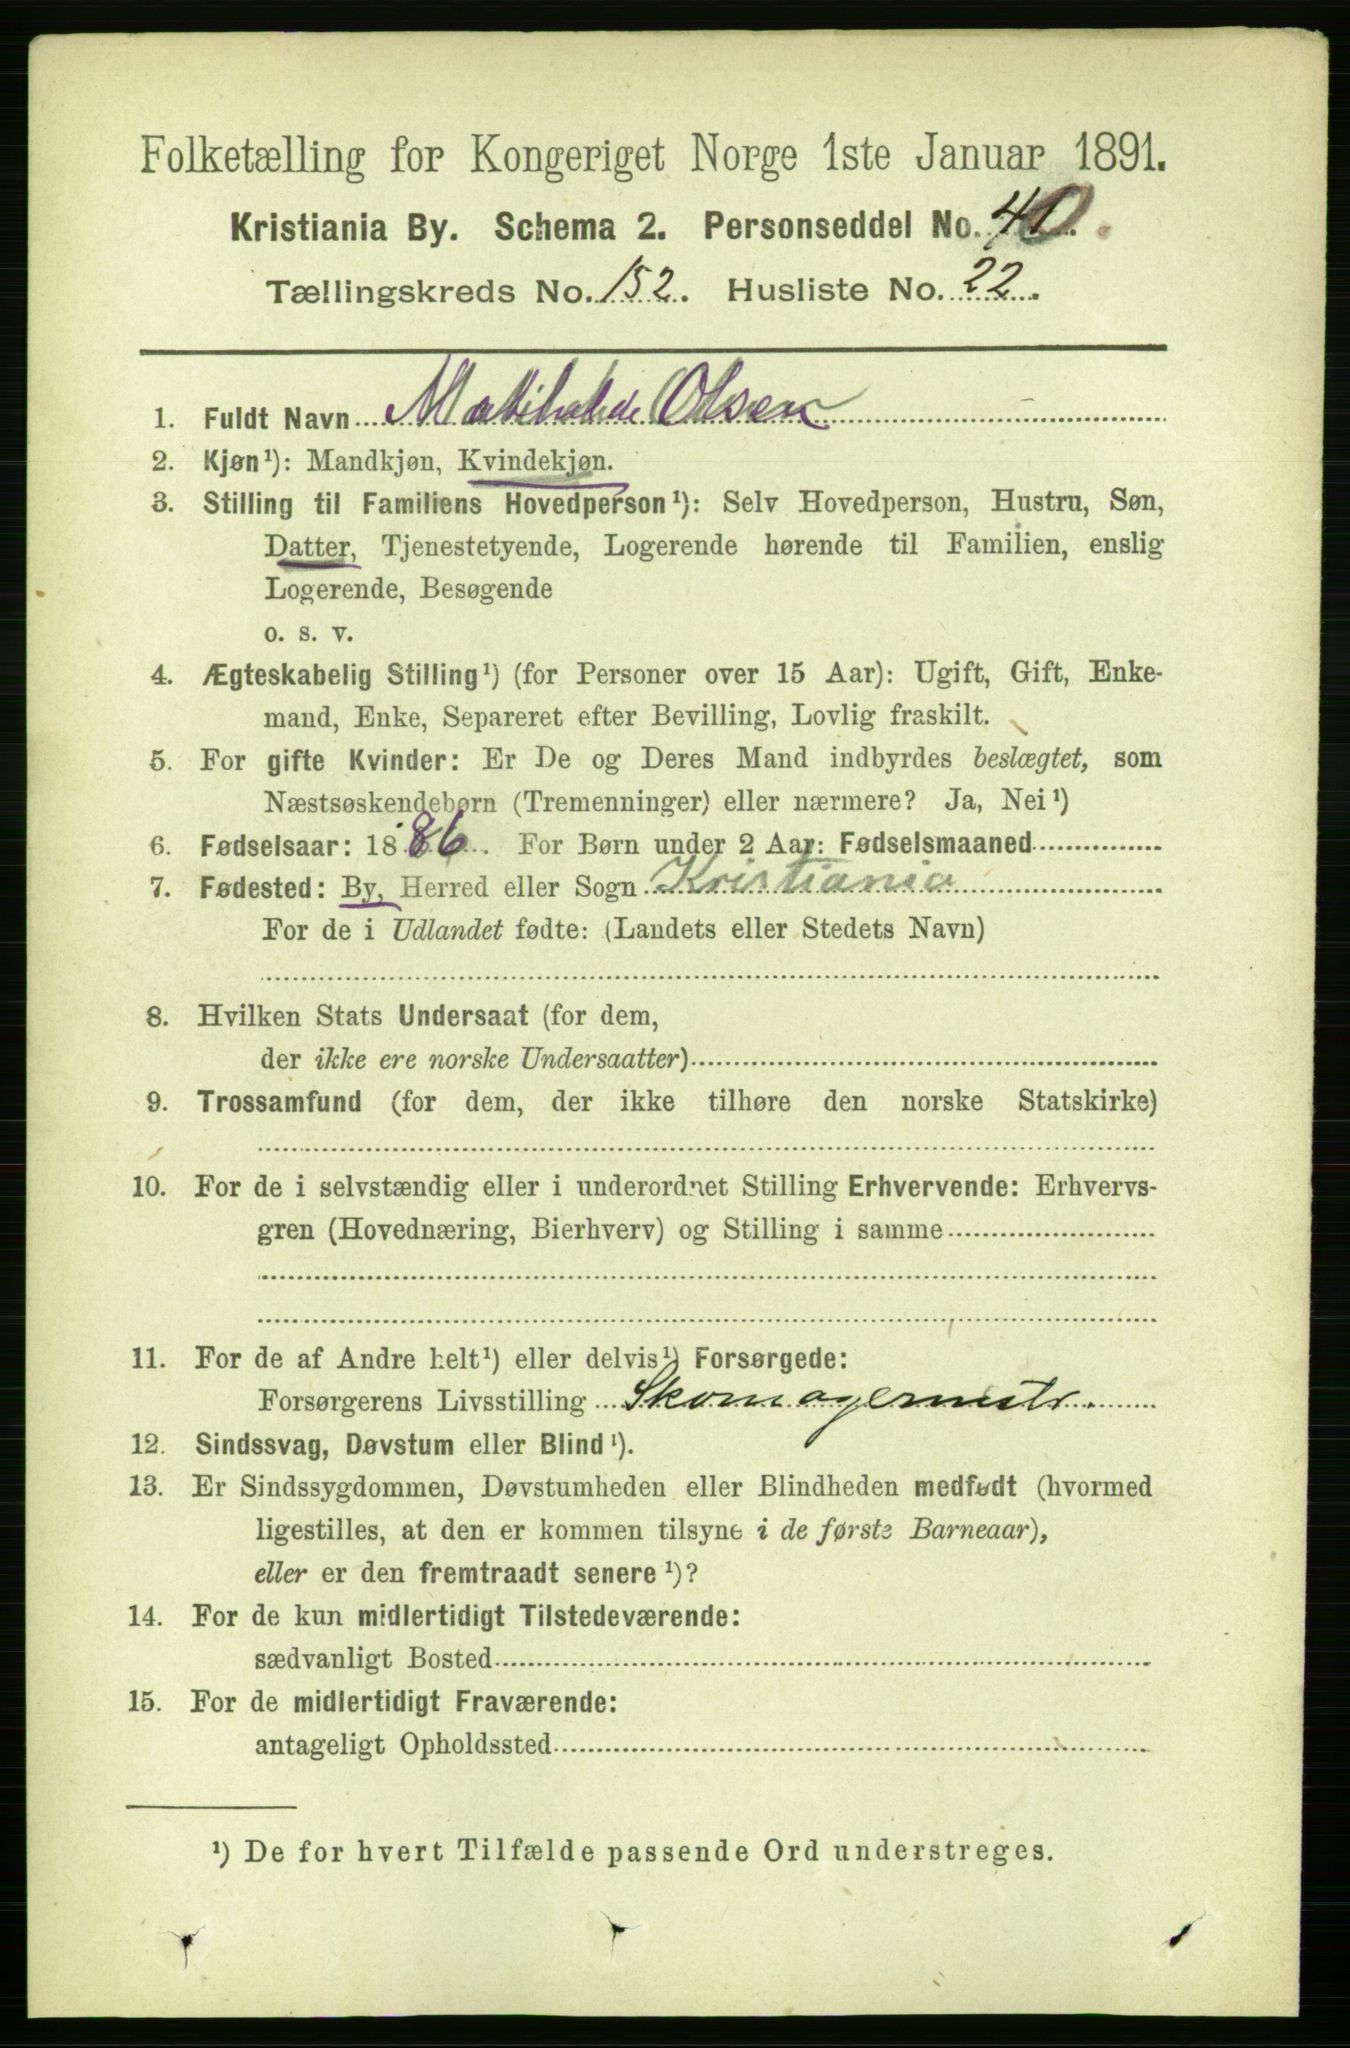 Folketælling for Kongeriget Norge 1ste Januar 1891.
Kristiania By. Schema 2. Personseddel No. 40.
Tællingskreds No. 152. Husliste No. 22.
1. Fuldt Navn Mathilde Olsen
2. Kjøn¹): Mandkjøn, Kvindekjøn.
3. Stilling til Familiens Hovedperson¹): Selv Hovedperson, Hustru, Søn,
Datter, Tjenestetyende, Logerende hørende til Familien, enslig
Logerende, Besøgende
o. s. v.
4. Ægteskabelig Stilling¹) (for Personer over 15 Aar): Ugift, Gift, Enke-
mand, Enke, Separeret efter Bevilling, Lovlig fraskilt.
5. For gifte Kvinder: Er De og Deres Mand indbyrdes beslægtet, som
Næstsøskendebørn (Tremenninger) eller nærmere? Ja, Nei¹)
6. Fødselsaar: 1886. For Børn under 2 Aar: Fødselsmaaned
7. Fødested: By, Herred eller Sogn Kristiania
For de i Udlandet fødte: (Landets eller Stedets Navn)
8. Hvilken Stats Undersaat (for dem,
der ikke ere norske Undersaatter)
9. Trossamfund (for dem, der ikke tilhøre den norske Statskirke)
10. For de i selvstændig eller i underordnet Stilling Erhvervende: Erhvervs-
gren (Hovednæring, Bierhverv) og Stilling i samme
11. For de af Andre helt¹) eller delvis¹) Forsørgede:
Forsørgerens Livsstilling Skomagermestr.
12. Sindssvag, Døvstum eller Blind¹).
13. Er Sindssygdommen, Døvstumheden eller Blindheden medfødt (hvormed
ligestilles, at den er kommen tilsyne i de første Barneaar),
eller er den fremtraadt senere¹)?
14. For de kun midlertidigt Tilstedeværende:
sædvanligt Bosted
15. For de midlertidigt Fraværende:
antageligt Opholdssted
¹) De for hvert Tilfælde passende Ord understreges.